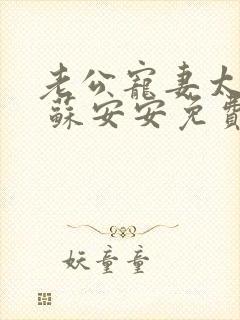 老公寵妻太
蘇安安免費
妖童童